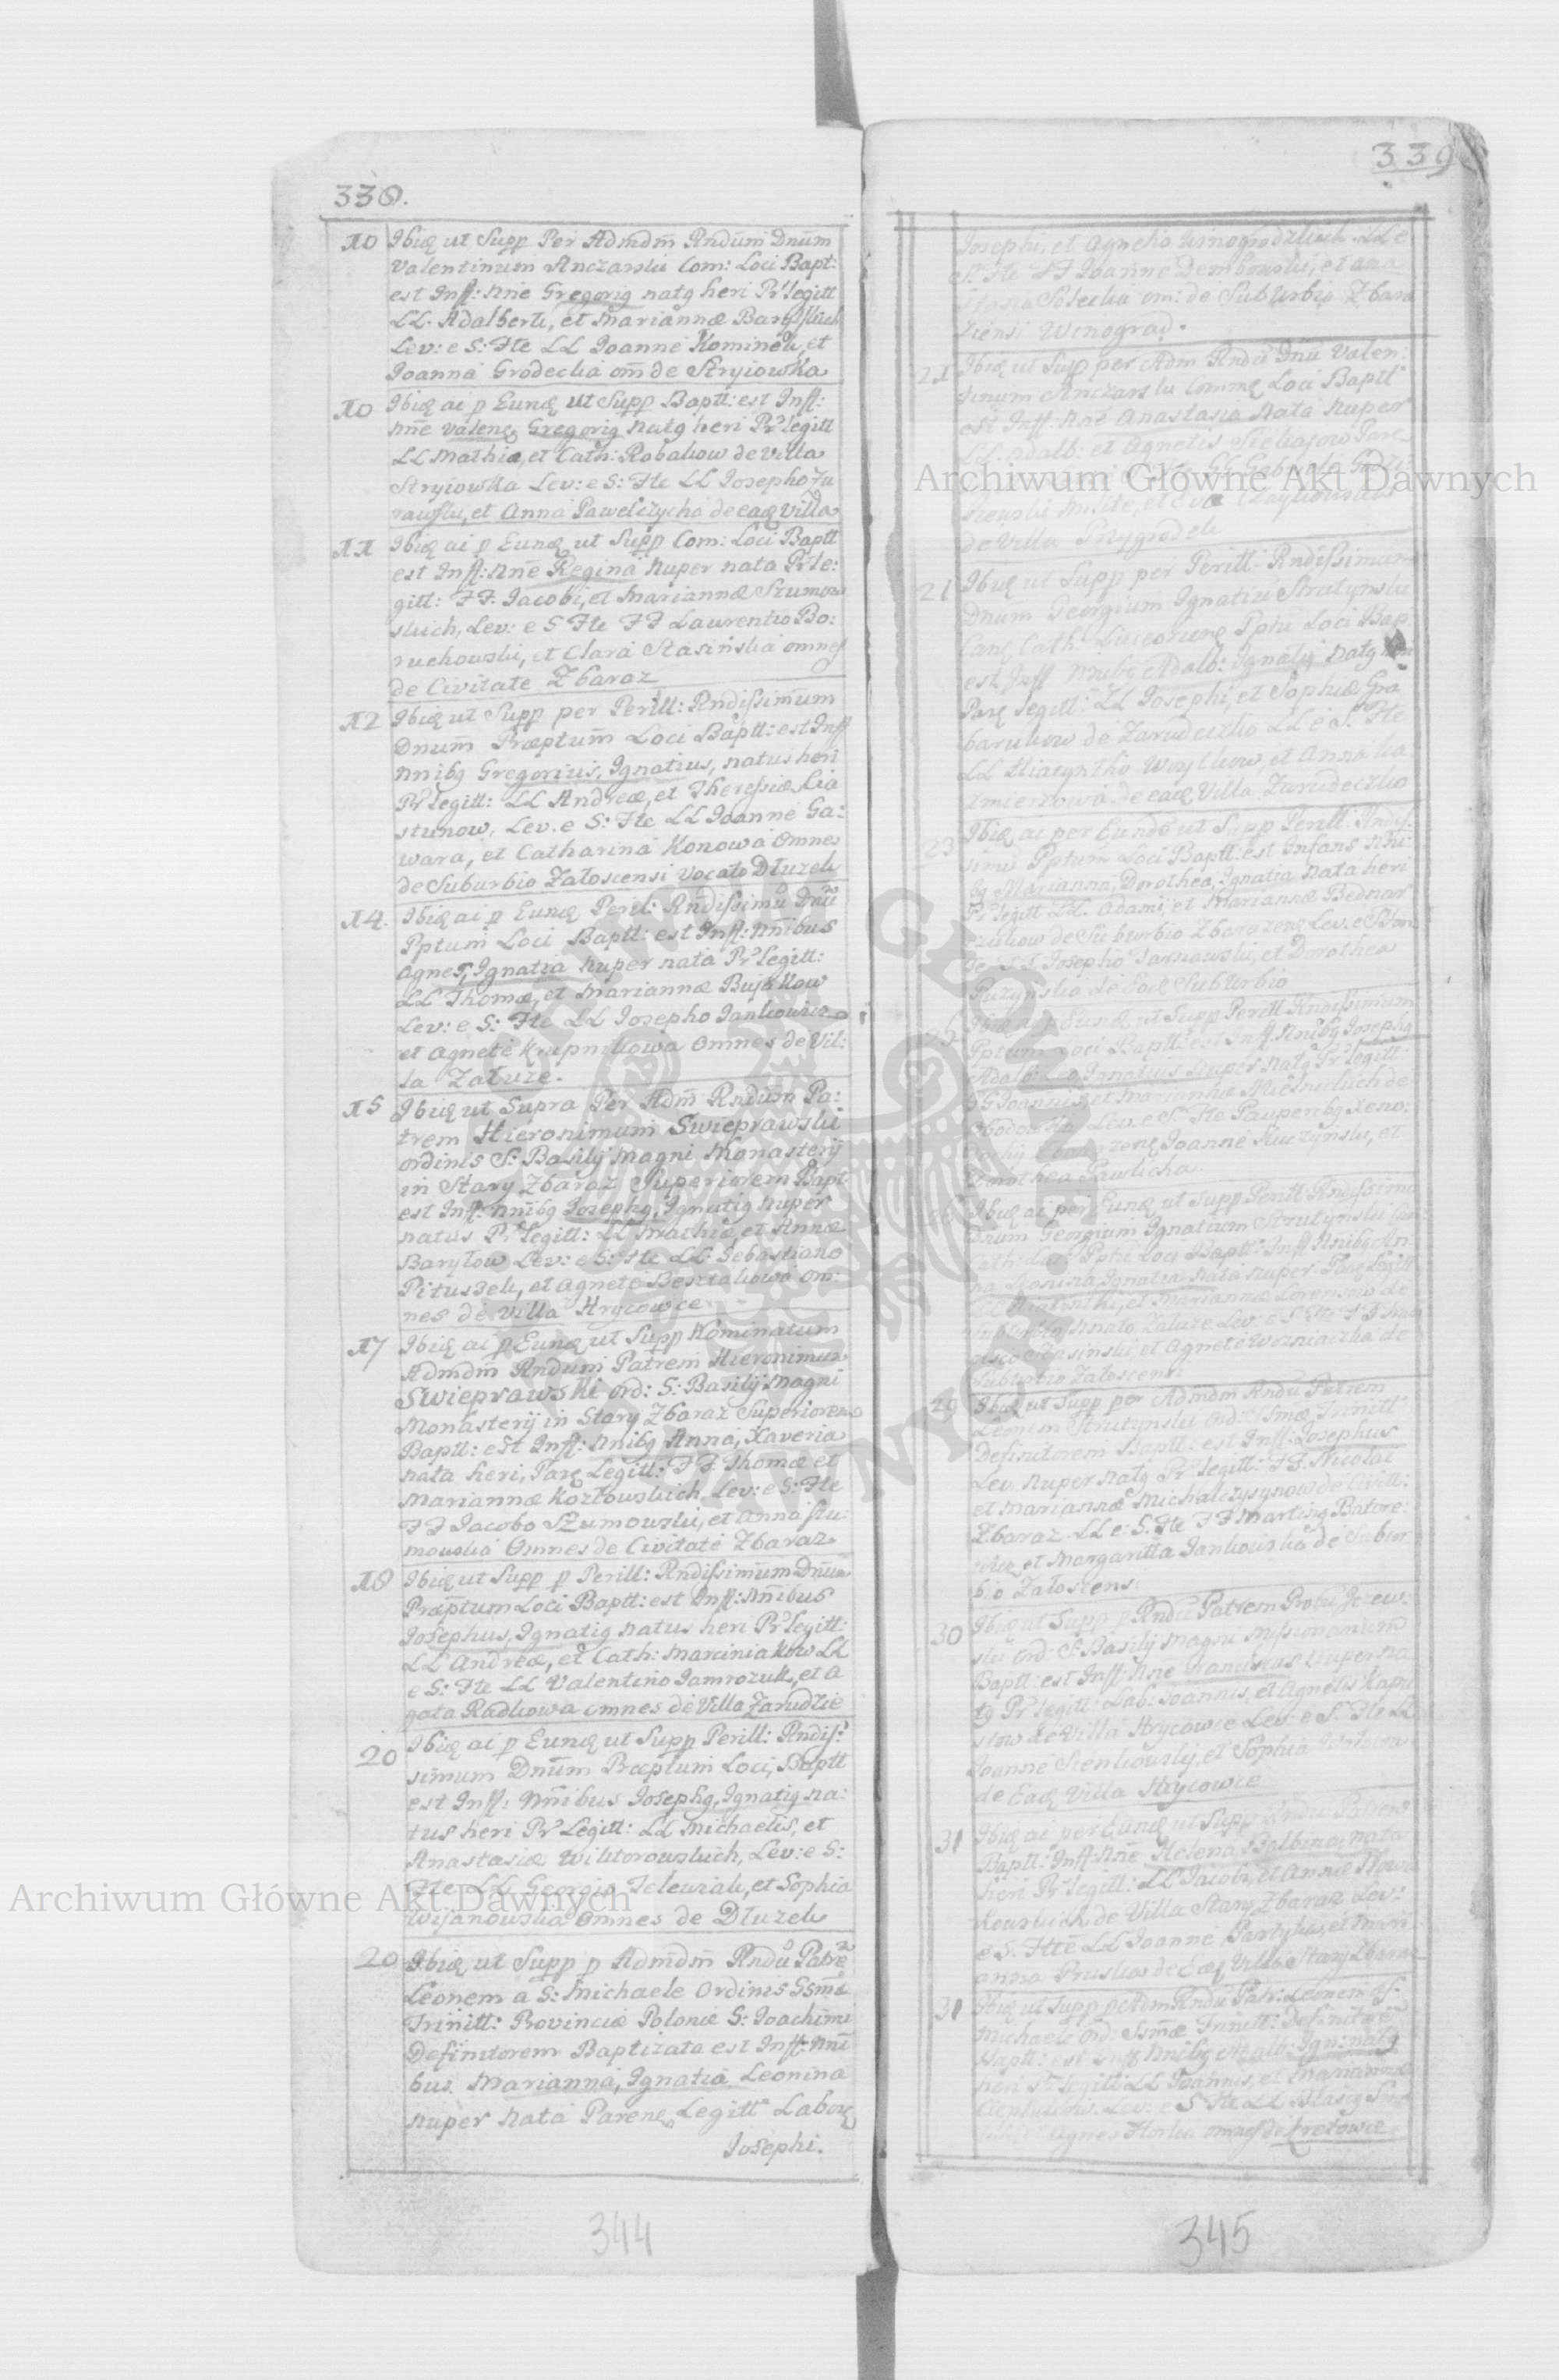 338.
10 Ibiq ut Supp Per Admdm Rndum Dnum
Valentinum Anczarski Com: Loci Bapt:
est Inff: Nne Gregorig natg heri Pr legitt
LL. Adalberti, et Mariannæ
Lev: e S: Fte LL Joanne Kominek, et
Joanna Grodecka om de Stryiowka
10 Ibiq ai p Eunq ut Supp Baptt: est Inff:
Nne Valenq Gregorig natg heri Pr legitt
LL Mathiæ, et Cath: Robakow de Villa
Stryiowka Lev: e S: Fte LL Josepho Zu
rawslu, et Anna Pawelczycha de eaq Villa
11 Ibiq ai p Eunq ut Supp Com: Loci Baptt
est Inff: Nne Regina nuper nata Pr le:
gitt: FF. Jacobi, et Mariannæ Szumow
skich, Lev: e S Fte FF Laurentio Bo:
ruchowski, et Clara Stasinska omnes
de Civitate Zbaraz
12 Ibiq ut Supp per Perill: Rndissimum
Dnum Præptum Loci Baptt: est Inff
Nnibq Gregorius, Ignatius, natus heri
Pr legitt: LL Andreæ, et Theressiæ Cia
stunow, Lev. e S: Fte LL Joanne Ga:
wara, et Catharina Konowa Omnes
de Suburbio Załoscensi vocato Dłuzek
14. Ibiq ai p Eunq Perill: Rndissimu Dnu
Pptum Loci Baptt: est Inff: Nnibus
Agnes, Ignatia nuper nata Pr legitt:
LL Thomæ, et Mariannæ Bujakow
Lev: e S: Fte LL Josepho Jankowicz
et Agnete Krupnikowa Omnes de Vil:
la Załuze.
15 Ibiq ut Supra Per Adm Rndum Pa:
trem Hieronimum Swieprawski
ordinis S: Basilij Magni Monasterij
in Stary Zbaraz Superiorem Bapt
est Inff: Nnibq Josephq, Ignatig nuper
natus Pr legitt: LL Mathiæ, et Annæ
Baryłow Lev: e S: Fte LL Sebastiano
Pituszek, et Agnete om:
nes de Villa Hrycowce
17 Ibiq ai p Eunq ut Supp Nominatum
Admdm Rndum Patrem Hieronimum
Swieprawski ord: S: Basilij Magni
Monasterij in Stary Zbaraz Superiorem
Baptt: est Inff: Nnibq Anna, Xaveria
nata heri, Parq Legitt: FF. Thomæ et
Mariannæ Kozłowskich, Lev: e S: Fte
FF Jacobo Szumowski, et Anna Szu:
mowska Omnes de Civitate Zbaraz
18 Ibiq ut Supp p Perill: Rndissimum Dnum
Præptum Loci Baptt: est Inff: Nnibus
Josephus, Ignatig natus heri Pr legitt:
LL Andreæ, et Cath: Marciniakow LL
e S: Fte LL Valentino Jamrozuk, et A
gata Radkowa omnes de Villa Zarudzie
20 Ibiq ai p Eunq ut Supp Perill: Rndis:
simum Dnum Præptum Loci, Baptt
est Inff: Nnibus Josephq, Ignatig na:
tus heri Pr Legitt: LL Michaelis, et
Anastasiæ Wiktorowskich, Lev: e S:
Fte LL Georgio Telewiak, et Sophia
Wijanowska Omnes de Dłuzek
20 Ibiq ut Supp p Admdm Rndu Patre
Leonem a S: Michaele Ordinis SSmæ
Trinitt: Provinciæ Poloniæ S: Joachimi
Definitorem Baptizata est Inff: Nni
bus Marianna, Ignatia Leonina
nuper nata Parenq Legitt Laborq
Josephi.
344
339
Josephi, et Agnetis Winogrodzkich. LL e
S: Fte FF Joanne Dembowski, et Ana
stasia om: de Suburbio Zbara
ziensi Winograd.
21 Ibiq ut Supp per Adm Rndu Dnu Valen:
tinum Anczarski Commq Loci Baptt
est Inff: Nne Anastasia nata nuper
LL. Adalb: et Agnetis Parq
milite, et Eva
de Villa Przygrodek
21 Ibiq ut Supp per Perill: Rndissimum
Dnum Georgium Ignatiu Strutynski
Canq Cath: Pptu Loci Bap
est Inff Nnibq Adalb: Ignatij natg
Parq legitt: LL Josephi, et Sophiæ Gra
barukow de Zarudeczko LL e S. Fte
LL Hiacyntho Woytkow, et Anna Ka
zmierzowa de eaq Villa Zarudeczko
23 Ibiq ai per Eunde ut Supp Perill: Rndis:
simu Pptum Loci Baptt: est Infans Nni:
bq Marianna, Dorothea, Ignatia nata heri
Pr legitt LL. Adami, et Mariannæ Bednar
czukow de Suburbio Lev. e S: Fon
te FF Josepho Tarnawski, et Dorothea
Puzynska de Eaq Suburbio
25 Ibiq ai p Eunq ut Supp Perill Rndissimum
Pptum Loci Baptt: est Inff Nnibq Josephq
Adalb: Leo Ignatius nuper natg Pr legitt:
GG Joannis, et Mariannæ de
Lev. e S: Fte Pauperibq Xeno:
dochij Joanne Kuczynski, et
Dorothea Pawlicha
26 Ibiq ai per Eunq ut Supp Perill Rndissimu
Dnum Georgium Ignatium Strutynski Can:
Cath: Pptu Loci Baptt: Inff Nnibq An:
na, Ignatia nata nuper Parq Legitt
et Mariannæ de
Suburbio Załuze Lev: e S: Fte FF
et Agnete Wozniaczka de
Suburbio Załoscensi
29 Ibiq ut Supp per Admdm Rndu Patrem
Leonem Strutynski Ord: SSmæ Trinitt:
Definitorem Baptt: est Inff: Josephus
Lev. nuper natg Pr legitt: FF. Nicolai
et Mariannæ Michalczyszynow de Civitt:
Zbaraz. LL e: S. Fte FF Martinq Batore:
wicz et Margaritta Jankowska de Subur
bio Załoscensi
30 Ibiq ut Supp p Rndu Patrem Jezew:
ski ord: S: Basilij Magni Missionarium
Baptt: est Inff: Nne Franciscus nuper na
tg Pr legitt: Lab: Joannis, et Agnetis Kapu
stow de Villa Hrycowce Lev: e S: Fte LL
Joanne Sienkowskij, et Sophia
de Eaq Villa Hrycowce
31 Ibiq ai per Eunq ut Supp Rndu Patrem
Baptt: Inff: Nne Helena Balbina, nata
heri Pr legitt: LL Jacobi, et Annæ Nowa
kowskich de Villa Stary Zbaraz Lev:
e S. Fte LL Joanne Partyka, et Mari
anna Pruska de Eaq Villa Stary Zbaraz
31 Ibiq ut Supp p Adm Rndu Patr: Leonem a S:
Michaele Ord: SSmæ Trinitt: Definitore
Baptt: est Inff Nnibq Adalb: Ign: natg
heri Pr legitt: LL Joannis, et Mariannæ
Lev: e S Fte LL Blasig
et Agnes omnes de Kretowce
345
Archiwum Główne Akt Dawnych
Archiwum Główne Akt Dawnych